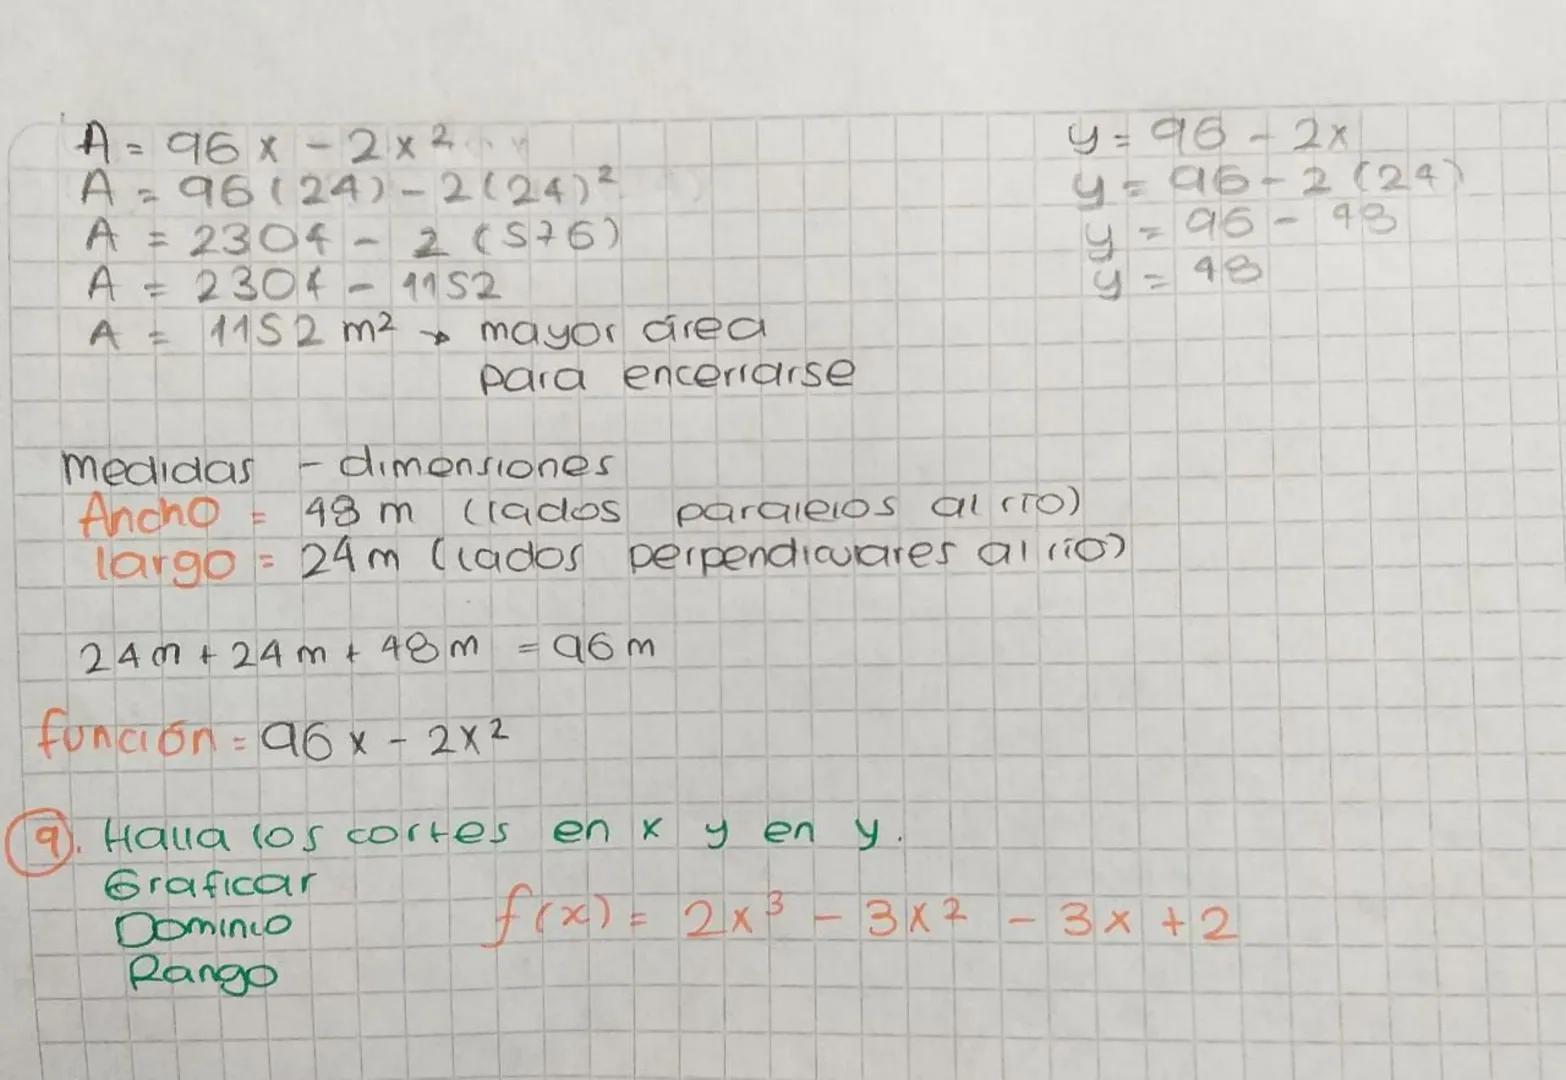 A = 96x - 2x²
A = 96(24) - 2(24)²
A = 2304 - 2(576)
A = 2304 - 1152
A = 1152 m² → mayor área
para encerrarse
y = 96 - 2x
y = 96 - 2(24)
y = 96 - 48
y = 48
medidas - dimensiones
Ancho = 48 m (lados paralelos al río)
largo = 24 m (lados perpendiculares al río)
24 m + 24 m + 48 m = 96 m
función = 96x - 2x²
9. Halla los cortes en x y en y.
Graficar
Dominio
f(x) = 2x³ - 3x² - 3x + 2
Rango